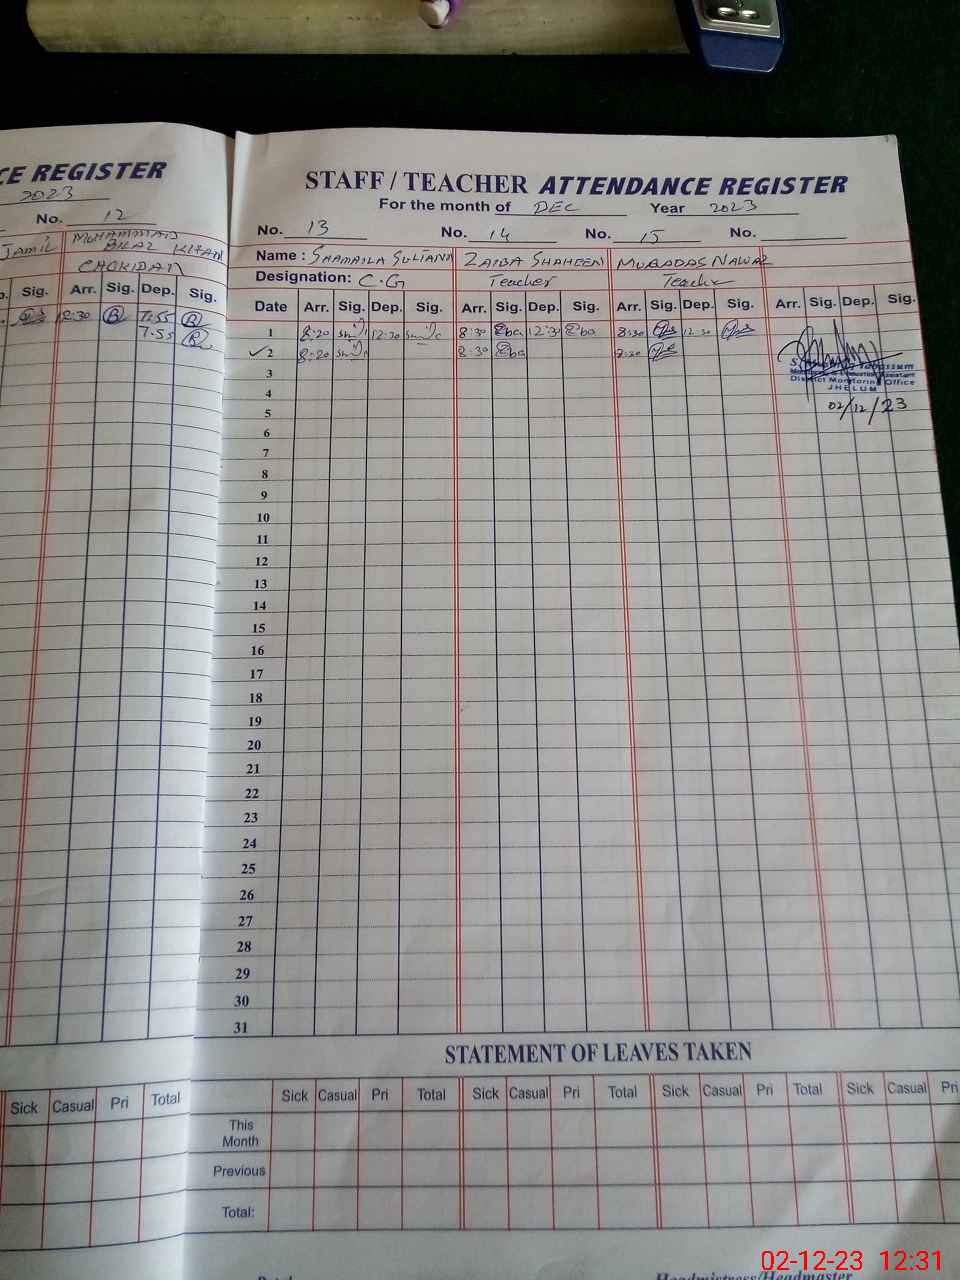 CE REGISTER
2023
No. 12
Jamil MOHAMMAD
BILAL
CHOKIDAR
Sig. Arr. Sig. Dep. Sig.
12:30 7:55
7:55
Sick Casual Pri Total
STAFF / TEACHER ATTENDANCE REGISTER
For the month of DEC Year 2023
No. 13 No. 14 No. 15 No.
Name : SHAMAILA ZAIBA SHAHEEN NAWAZ
Designation: C.G Teacher Teacher
Date Arr. Sig. Dep. Sig. Arr. Sig. Dep. Sig. Arr. Sig. Dep. Sig. Arr. Sig. Dep. Sig.
1 8:20 12:30 8:30 12:3 8:30 12:30
✓2 8:20 8:30
3
4
5
6
7
8
9
10
11
12
13
14
15
16
17
18
19
20
21
22
23
24
25
26
27
28
29
30
31
District Monitoring Office
JHELUM
02/12/23
STATEMENT OF LEAVES TAKEN
Sick Casual Pri Total Sick Casual Pri Total Sick Casual Pri Total Sick Casual Pri
This
Month
Previous
Total:
Headmistress/Headmaster
02-12-23 12:31